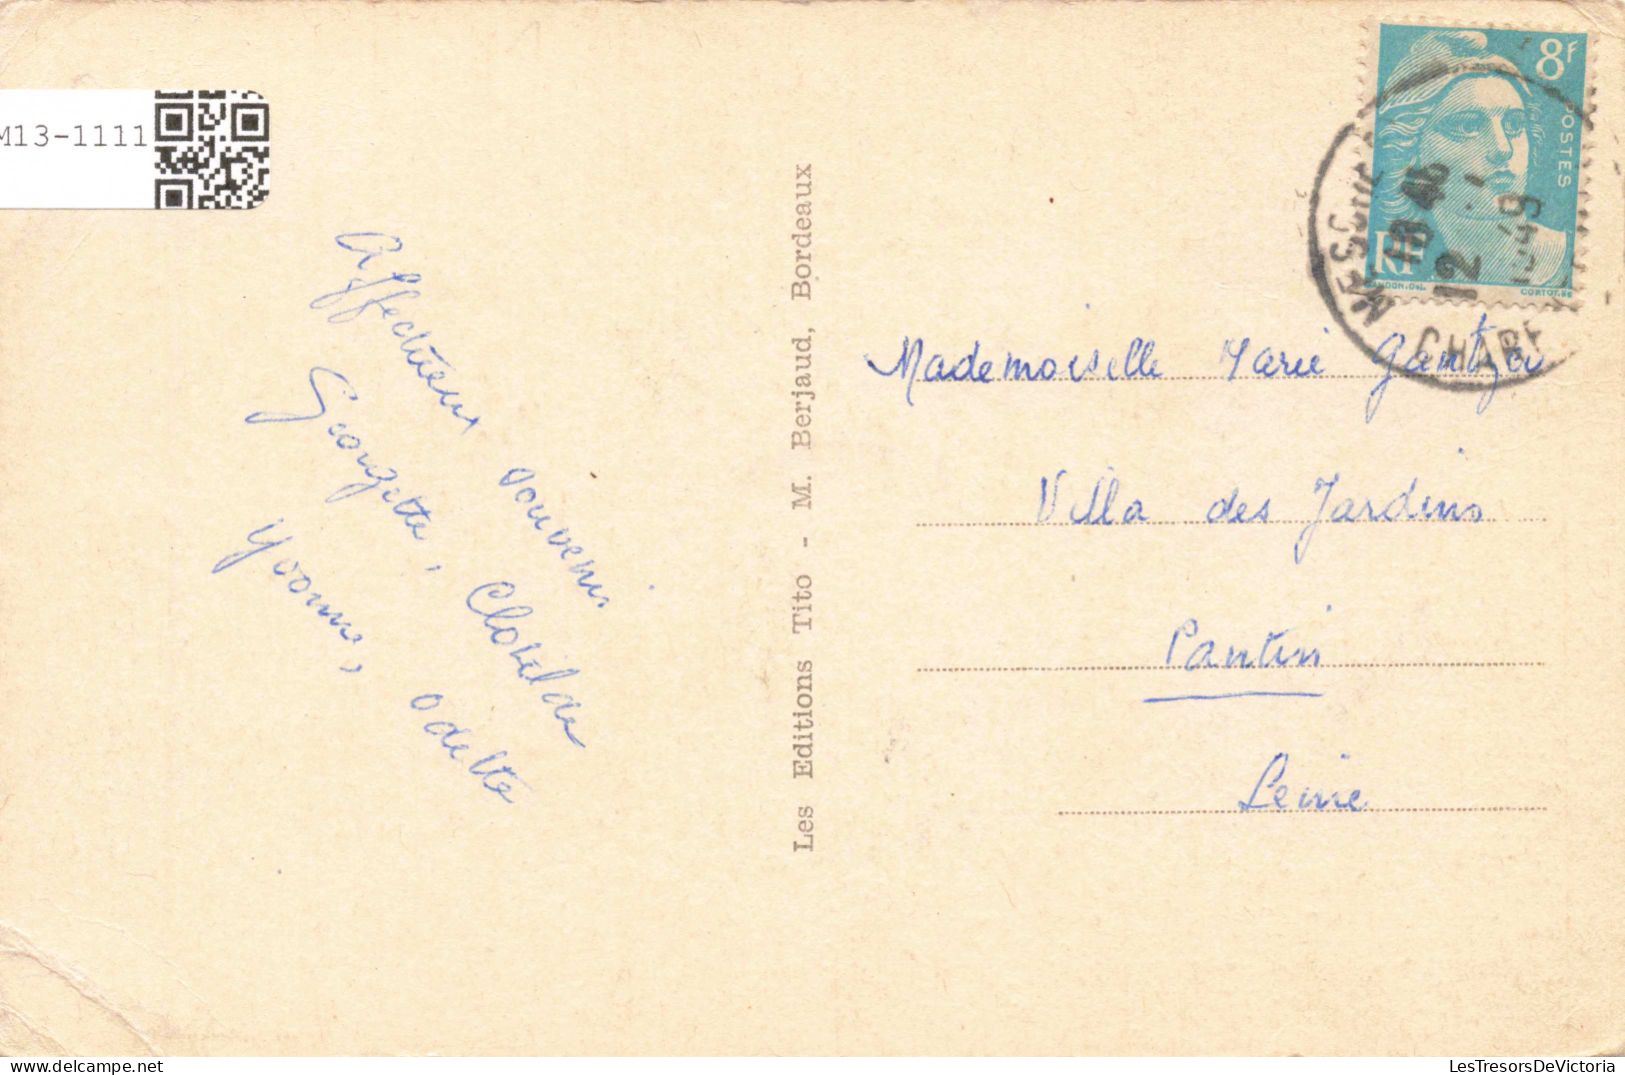 M13-1111
Affectueux souvenir
Georgette, Clotilde
Yvonne, Odette
Les Editions Tito - M. Berjaud, Bordeaux
8F
POSTES
RF
GANDON.Del.
CORTOT.Sc
18 45
12
CHARE
Mademoiselle Marie
Villa des Jardins
Pantin
Seine
LesTresorsDeVictoria